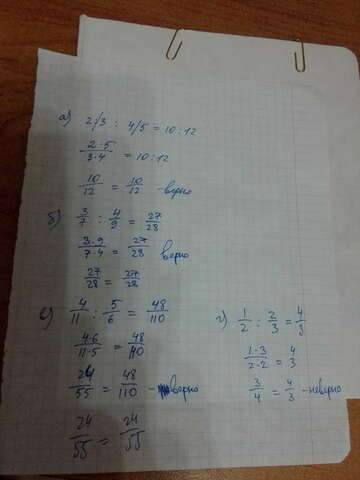 а) 2/3 : 4/5 = 10:12
2·5/3·4 = 10:12
10/12 = 10/12 - верно
б) 3/7 : 4/9 = 27/28
3·9/7·4 = 27/28 верно
27/28 = 27/28
с) 4/11 : 5/6 = 48/110
4·6/11·5 = 48/110
24/55 = 48/110 - верно
24/55 = 24/55
г) 1/2 : 2/3 = 4/3
1·3/2·2 = 4/3
3/4 = 4/3 - неверно